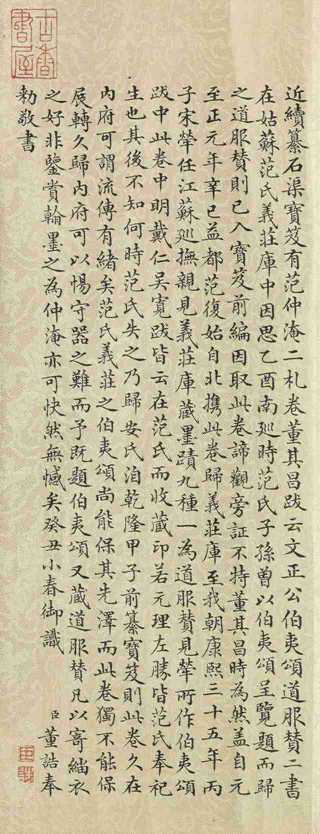 古香書屋
近續纂石渠寶笈有范仲淹二札卷董其昌跋云文正公伯夷頌道服贊二書
在姑蘇范氏義莊庫中因思乙酉南廵時范氏子孫曾以伯夷頌呈覽題而歸
之道服贊則已入寶笈前編因取此卷諦觀旁証不特董其昌時為然蓋自元
至正元年辛巳益都范復始自北攜此卷歸義莊庫至我朝康熙三十五年丙
子宋犖任江蘇廵撫親見義莊庫蔵墨蹟九種一為道服贊見犖所作伯夷頌
跋中此卷中明戴仁吳寬跋皆云在范氏而收蔵印若元理左勝皆范氏奉祀
生也其後不知何時范氏失之乃歸安氏洎乾隆甲子前纂寶笈則此卷久在
內府可謂流傳有緒矣范氏義莊之伯夷頌尚能保其先澤而此卷獨不能保
展轉久歸內府可以惕守器之難而予既題伯夷頌又蔵道服贊凡以寄緇衣
之好非鑒賞翰墨之為仲淹亦可快然無憾矣癸丑小春御識
臣董誥奉
勅敬書